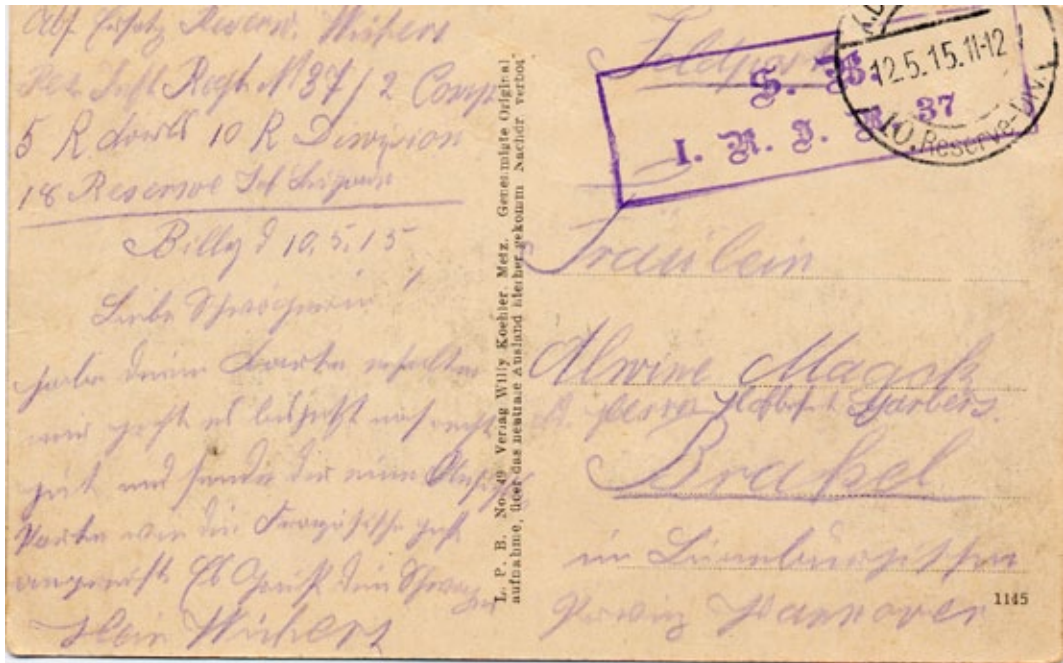 Abs. Ersatz Reserv. Wichers
Res. Inft Regt. № 37 / 2 Comp
5 R 10 R Division
18 Reserve Inf
Billy d 10.5.15
Liebe Schwägerin!
habe deine Karte erhalten
mir geht es bis jetzt noch recht
gut und sende dir eine
Karte wie die Französische
Es Grüßt dein Schwager
Hein Wichers
L. P. B. No. 49 Verlag Willy Koehler, Metz. Genehmigte Original
aufnahme, über das neutrale Ausland hierher gekomm Nachdr verbot
Feldpost
S. B.
I. R. I. R. 37
12.5.15.11-12
10. Reserve-Div.
Fräulein
Alwine
Brakel
in Lüneburgischen
Provinz Hannover
1145